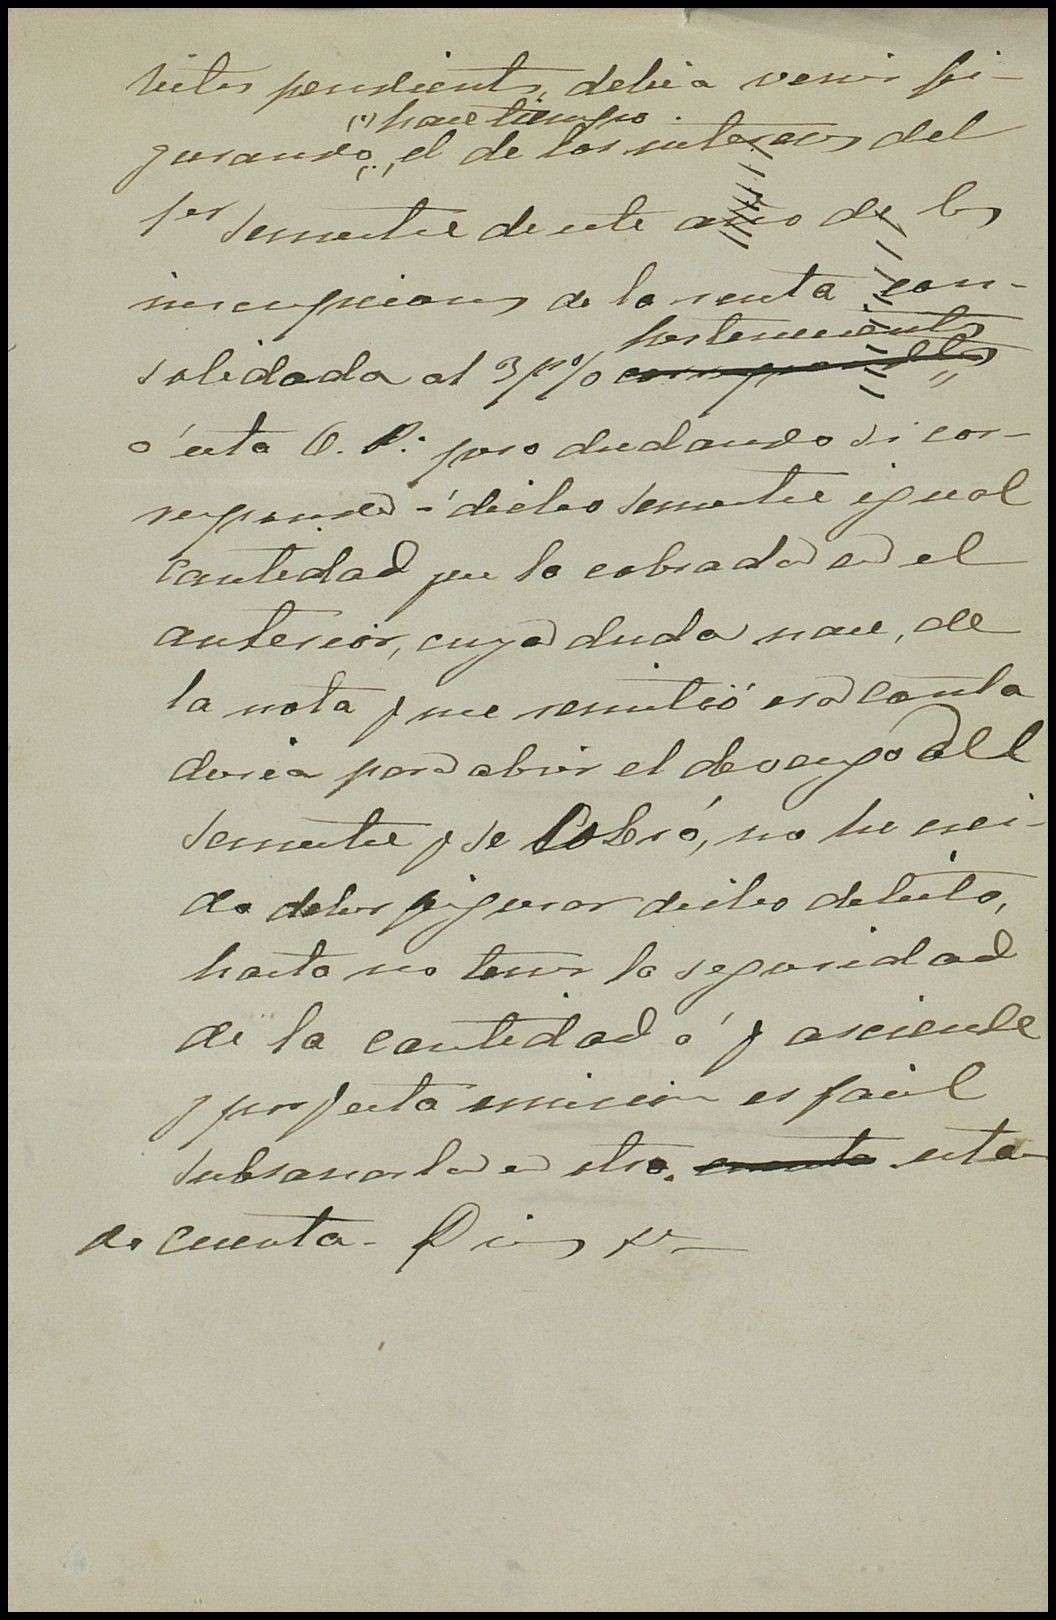 bitos pendientes, debia venir fi-
(") hace tiempo
gurando, el de los intereses del
1er semestre de este año de las
inscripciones de la renta con-
pertenecientes
solidada al 3 p% correspondientes
á esta O. P. pero dudando si cor-
responde á dicho semestre igual
cantidad que la cobrada en el
anterior, cuya duda nace, de
la nota q me remitió esa Conta
duria para abrir el devengo del
semestre q se cobró, no he crei-
do deber figurar dicho debito,
hasta no tener la seguridad
de la cantidad á q asciende
y por q esta omision es facil
subsanarla en otro. cuenta esta
do cuenta - Dios